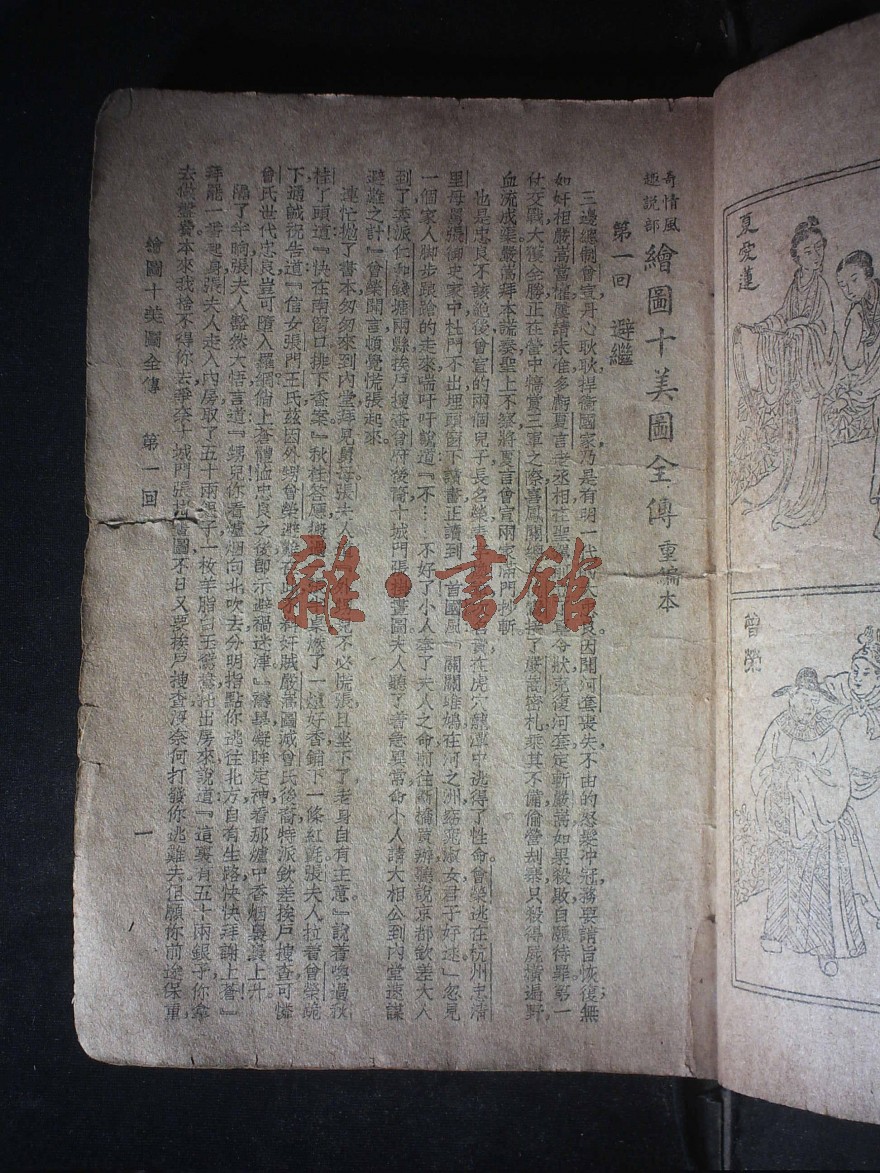 奇情風趣說部
繪圖十美圖全傳 重編本
第一回 避繼
三邊總制曾宣丹心耿耿捍衛國家乃是有明一代
因聞河套喪失不由的怒髮冲冠務要請旨恢復無
如奸相嚴嵩當權屢請未准多虧夏言老丞相在聖
令狀克復河套定斬嚴嵩如果殺敗自願待罪第一
仗交戰大獲全勝正在營中犒賞三軍之際喜鳳關總
接了嚴嵩密札乘其不備偷營刦寨只殺得屍橫遍野
血流成渠嚴嵩拜本謊奏聖上不察將夏言曾宣兩家滿門抄斬
也是忠良不該絕後曾宣的兩個兒子長名榮
在虎穴龍潭中逃得了性命曾榮逃在杭州忠清
里母舅張御史家中杜門不出埋頭窗下讀書正讀到一首國風「關關雎鳩在河之洲窈窕淑女君子好逑」忽見
一個家人脚步踉蹌的走來喘吁吁說道『不…不好了小人奉了夫人之命前往斷橋
聽說京都欽差大人
到了委派仁和錢塘兩縣挨戶搜查曾府後裔十城門張掛畫圖夫人聽了着急異常命小人請大相公到內堂速謀
避難之計』曾榮聞言頓覺慌張起來
連忙拋了書本匆匆來到內堂拜見舅母張夫人
不必慌張且坐下了老身自有主意』說着喚過秋
桂丫頭道『快在南窗口排下香案』秋桂答應
燃了一爐好香鋪下一條紅氈張夫人拉着曾榮跪
下通誠祝告道『信女張門王氏茲因外甥曾榮逃難在此
料奸賊嚴嵩圖滅曾氏後裔特派欽差挨戶搜查可憐
曾氏世代忠良豈可墮入羅網倘上蒼體恤忠良之後即示避禍迷津』禱畢凝眸定神看那爐中香烟裊裊上升
隔了半晌張夫人豁然大悟言道『甥兒你看爐烟向北吹去分明指點你逃往北方自有生路快快拜謝上蒼』
拜罷一番起身張夫人走入內房取了五十兩銀子一枚羊脂白玉鴛鴦托出房來說道『這裏有五十兩銀子你拿
去做盤費本來我捨不得你去爭奈十城門張掛畫圖不日又要挨戶搜查沒奈何打發你逃難去但願你前途保重
繪圖十美圖全傳 第一回 一
夏愛蓮
曾榮
雜·書館